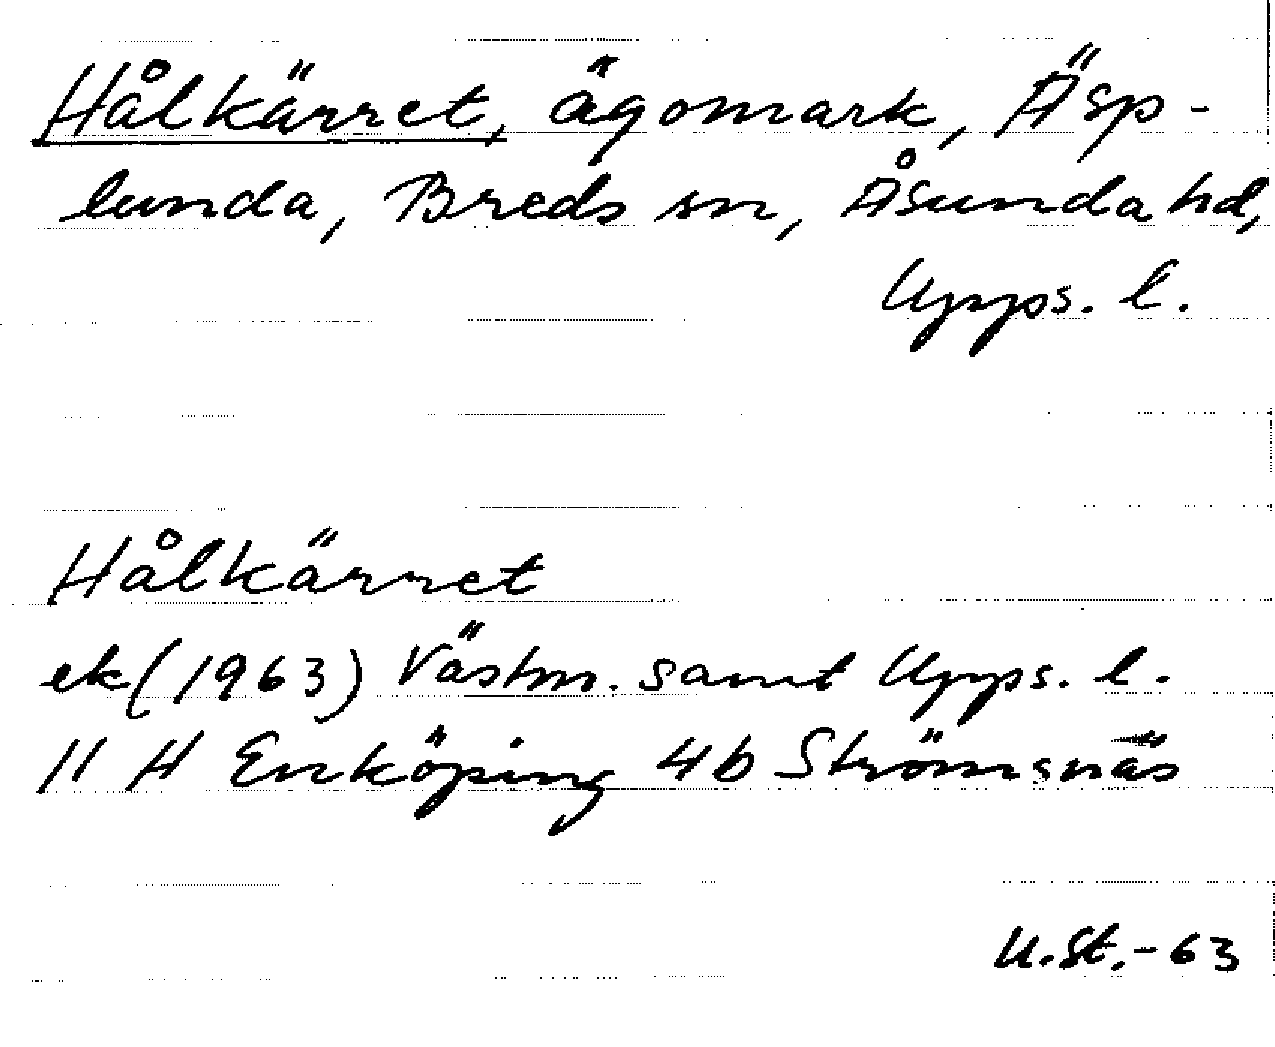 Hålkärret, ägomark, Äsp-
lunda, Breds sn, Åsunda hd,
Upps. l.
Hålkärret
ek (1963) Västm. samt Upps. l.
11 H Enköping 4b Strömsnäs
U.St.-63